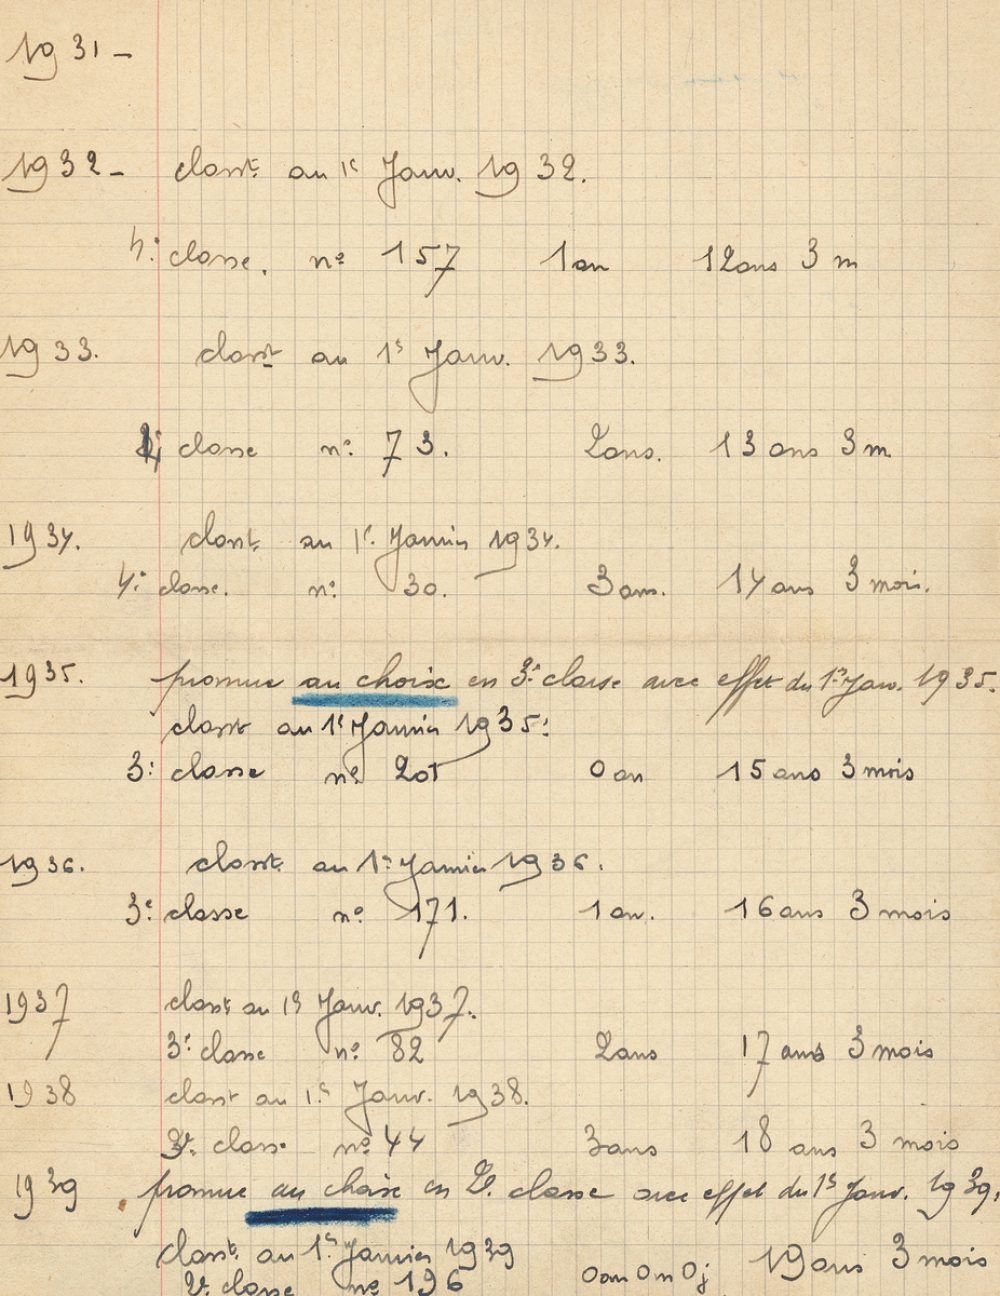 1931 -
1932 - classt au 1er Janv. 1932.
4e classe. no 157 1 an 12 ans 3 m
1933. classt au 1er Janv. 1933.
4e classe no 73. 2 ans. 13 ans 3 m
1934. classt au 1er Janvier 1934.
4e classe. no 30. 3 ans. 14 ans 3 mois.
1935. promue au choix en 3e classe avec effet du 1er Janv. 1935.
classt au 1er Janvier 1935:
3e classe no 201 0 an 15 ans 3 mois
1936. classt au 1er Janvier 1936.
3e classe no 171. 1 an. 16 ans 3 mois
1937 classt au 1er Janv. 1937.
3e classe no 82 2 ans 17 ans 3 mois
1938 classt au 1er Janv. 1938.
3e classe no 44 3 ans 18 ans 3 mois
1939 promue au choix en 2e classe avec effet du 1er Janv. 1939.
classt au 1er Janvier 1939 19 ans 3 mois
2e classe no 196 0 an 0 m 0 j